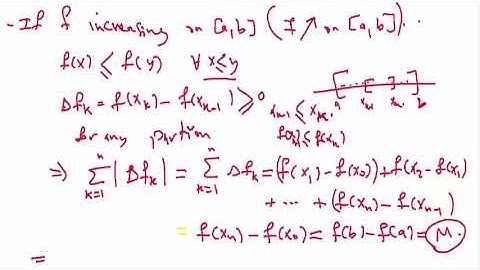 - If f increasing on [a,b] (f ↗ on [a,b]).
f(x) ≤ f(y) ∀ x ≤ y
Δf_k = f(x_k) - f(x_{k-1}) ≥ 0
x_{k-1} ≤ x_k
a x_{k-1} x_k b
for any partition
f(x_{k-1}) ≤ f(x_k)
⇒ ∑_{k=1}^{n} |Δf_k| = ∑_{k=1}^{n} Δf_k = (f(x_1) - f(x_0)) + f(x_2 - f(x_1)
+ ... + (f(x_n) - f(x_{n-1})
= f(x_n) - f(x_0) = f(b) - f(a) = M.
=